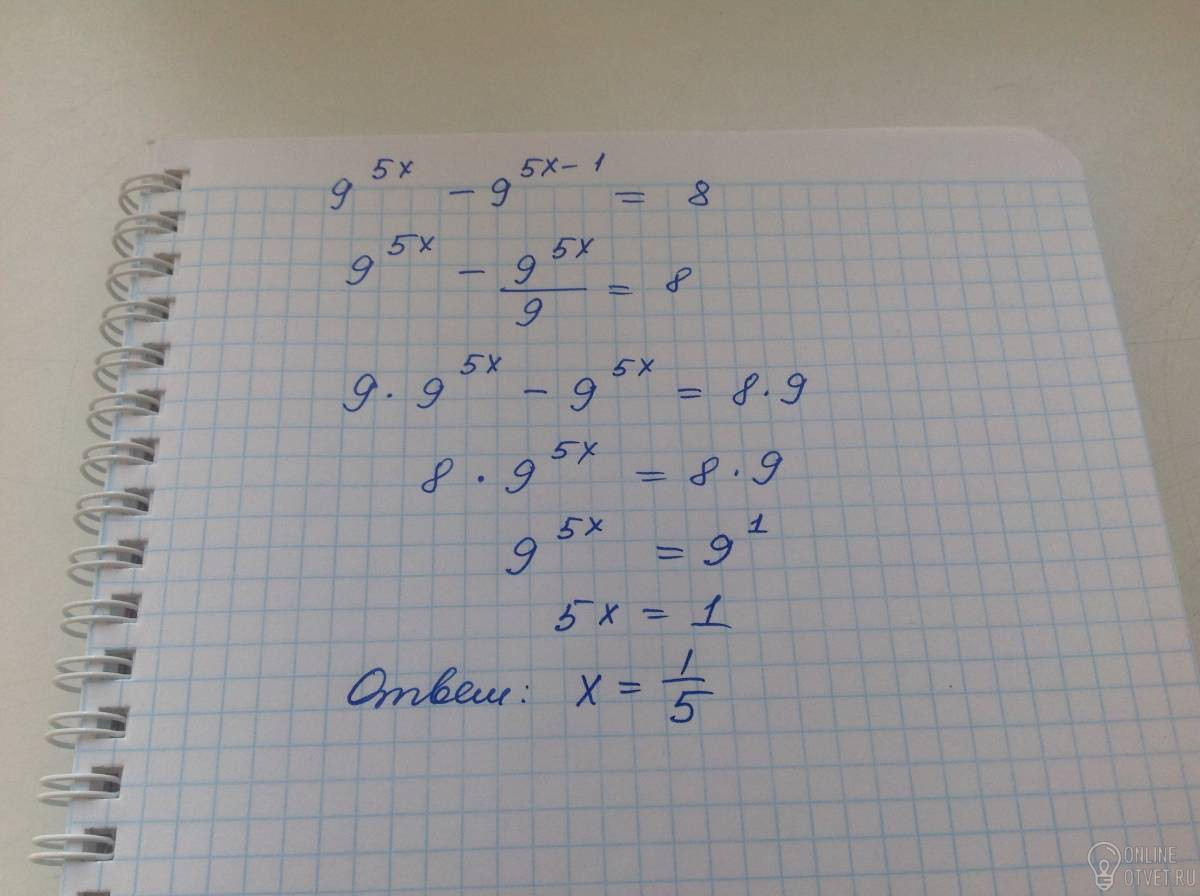 9^{5x} - 9^{5x-1} = 8
9^{5x} - \frac{9^{5x}}{9} = 8
9 · 9^{5x} - 9^{5x} = 8 · 9
8 · 9^{5x} = 8 · 9
9^{5x} = 9^{1}
5x = 1
Ответ: x = \frac{1}{5}
ONLINE
OTVET.RU